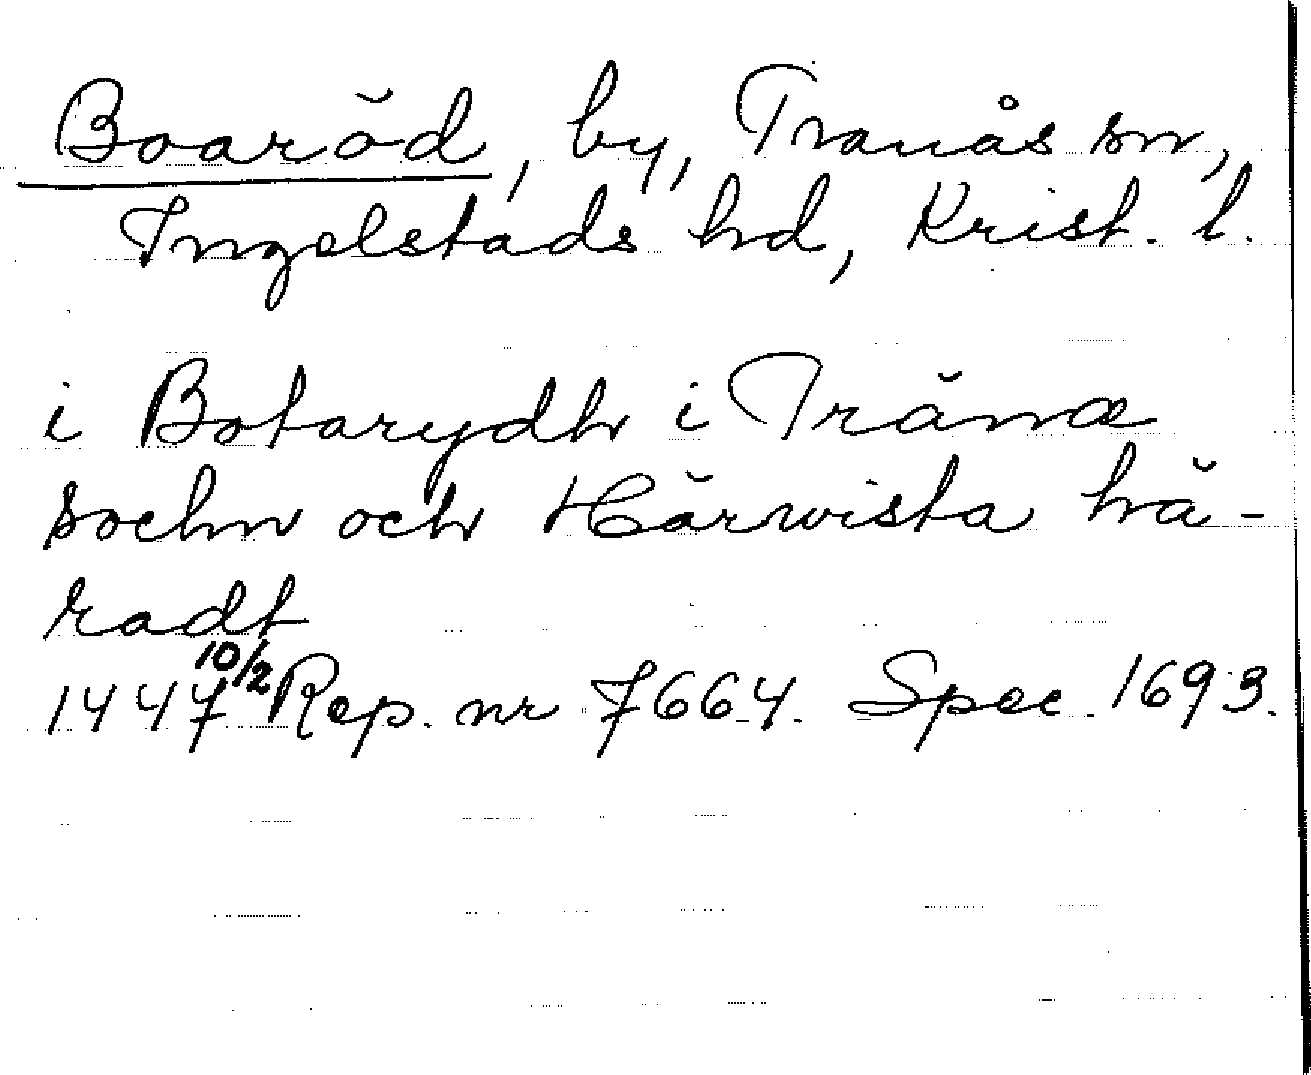 Boaröd, by, Tranås sn,
Ingelstads hd, Krist. l.
i Botarydh i Tränæ
sochn och Härwista hä-
radt
1447 10/2 Rep. nr 7664. Spec. 1693.